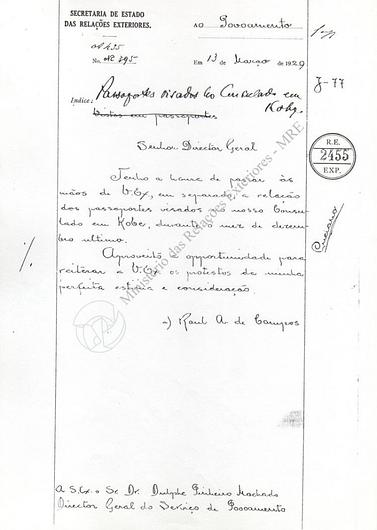 SECRETARIA DE ESTADO
DAS RELAÇÕES EXTERIORES.
AO Povoamento
No.
Em 13 de Março de 1929
J-77
Indice: Passaportes visados no Consulado em
Kobe.
Vistos em passaportes
Senhor Director Geral
R.E.
2455
EXP.
Tenho a honra de passar ás
mãos de V. Ex., em separado, a relação
dos passaportes visados no nosso Consu-
lado em Kobe, durante o mez de dezem-
bro ultimo.
Aproveito a opportunidade para
reiterar a V. Ex. os protestos da minha
perfeita estima e consideração.
a) Raul A. de Campos
A S. Ex. o Sr. Dr. Dulphe Pinheiro Machado
Director Geral do Serviço de Povoamento
Ministério das Relações Exteriores - MRE